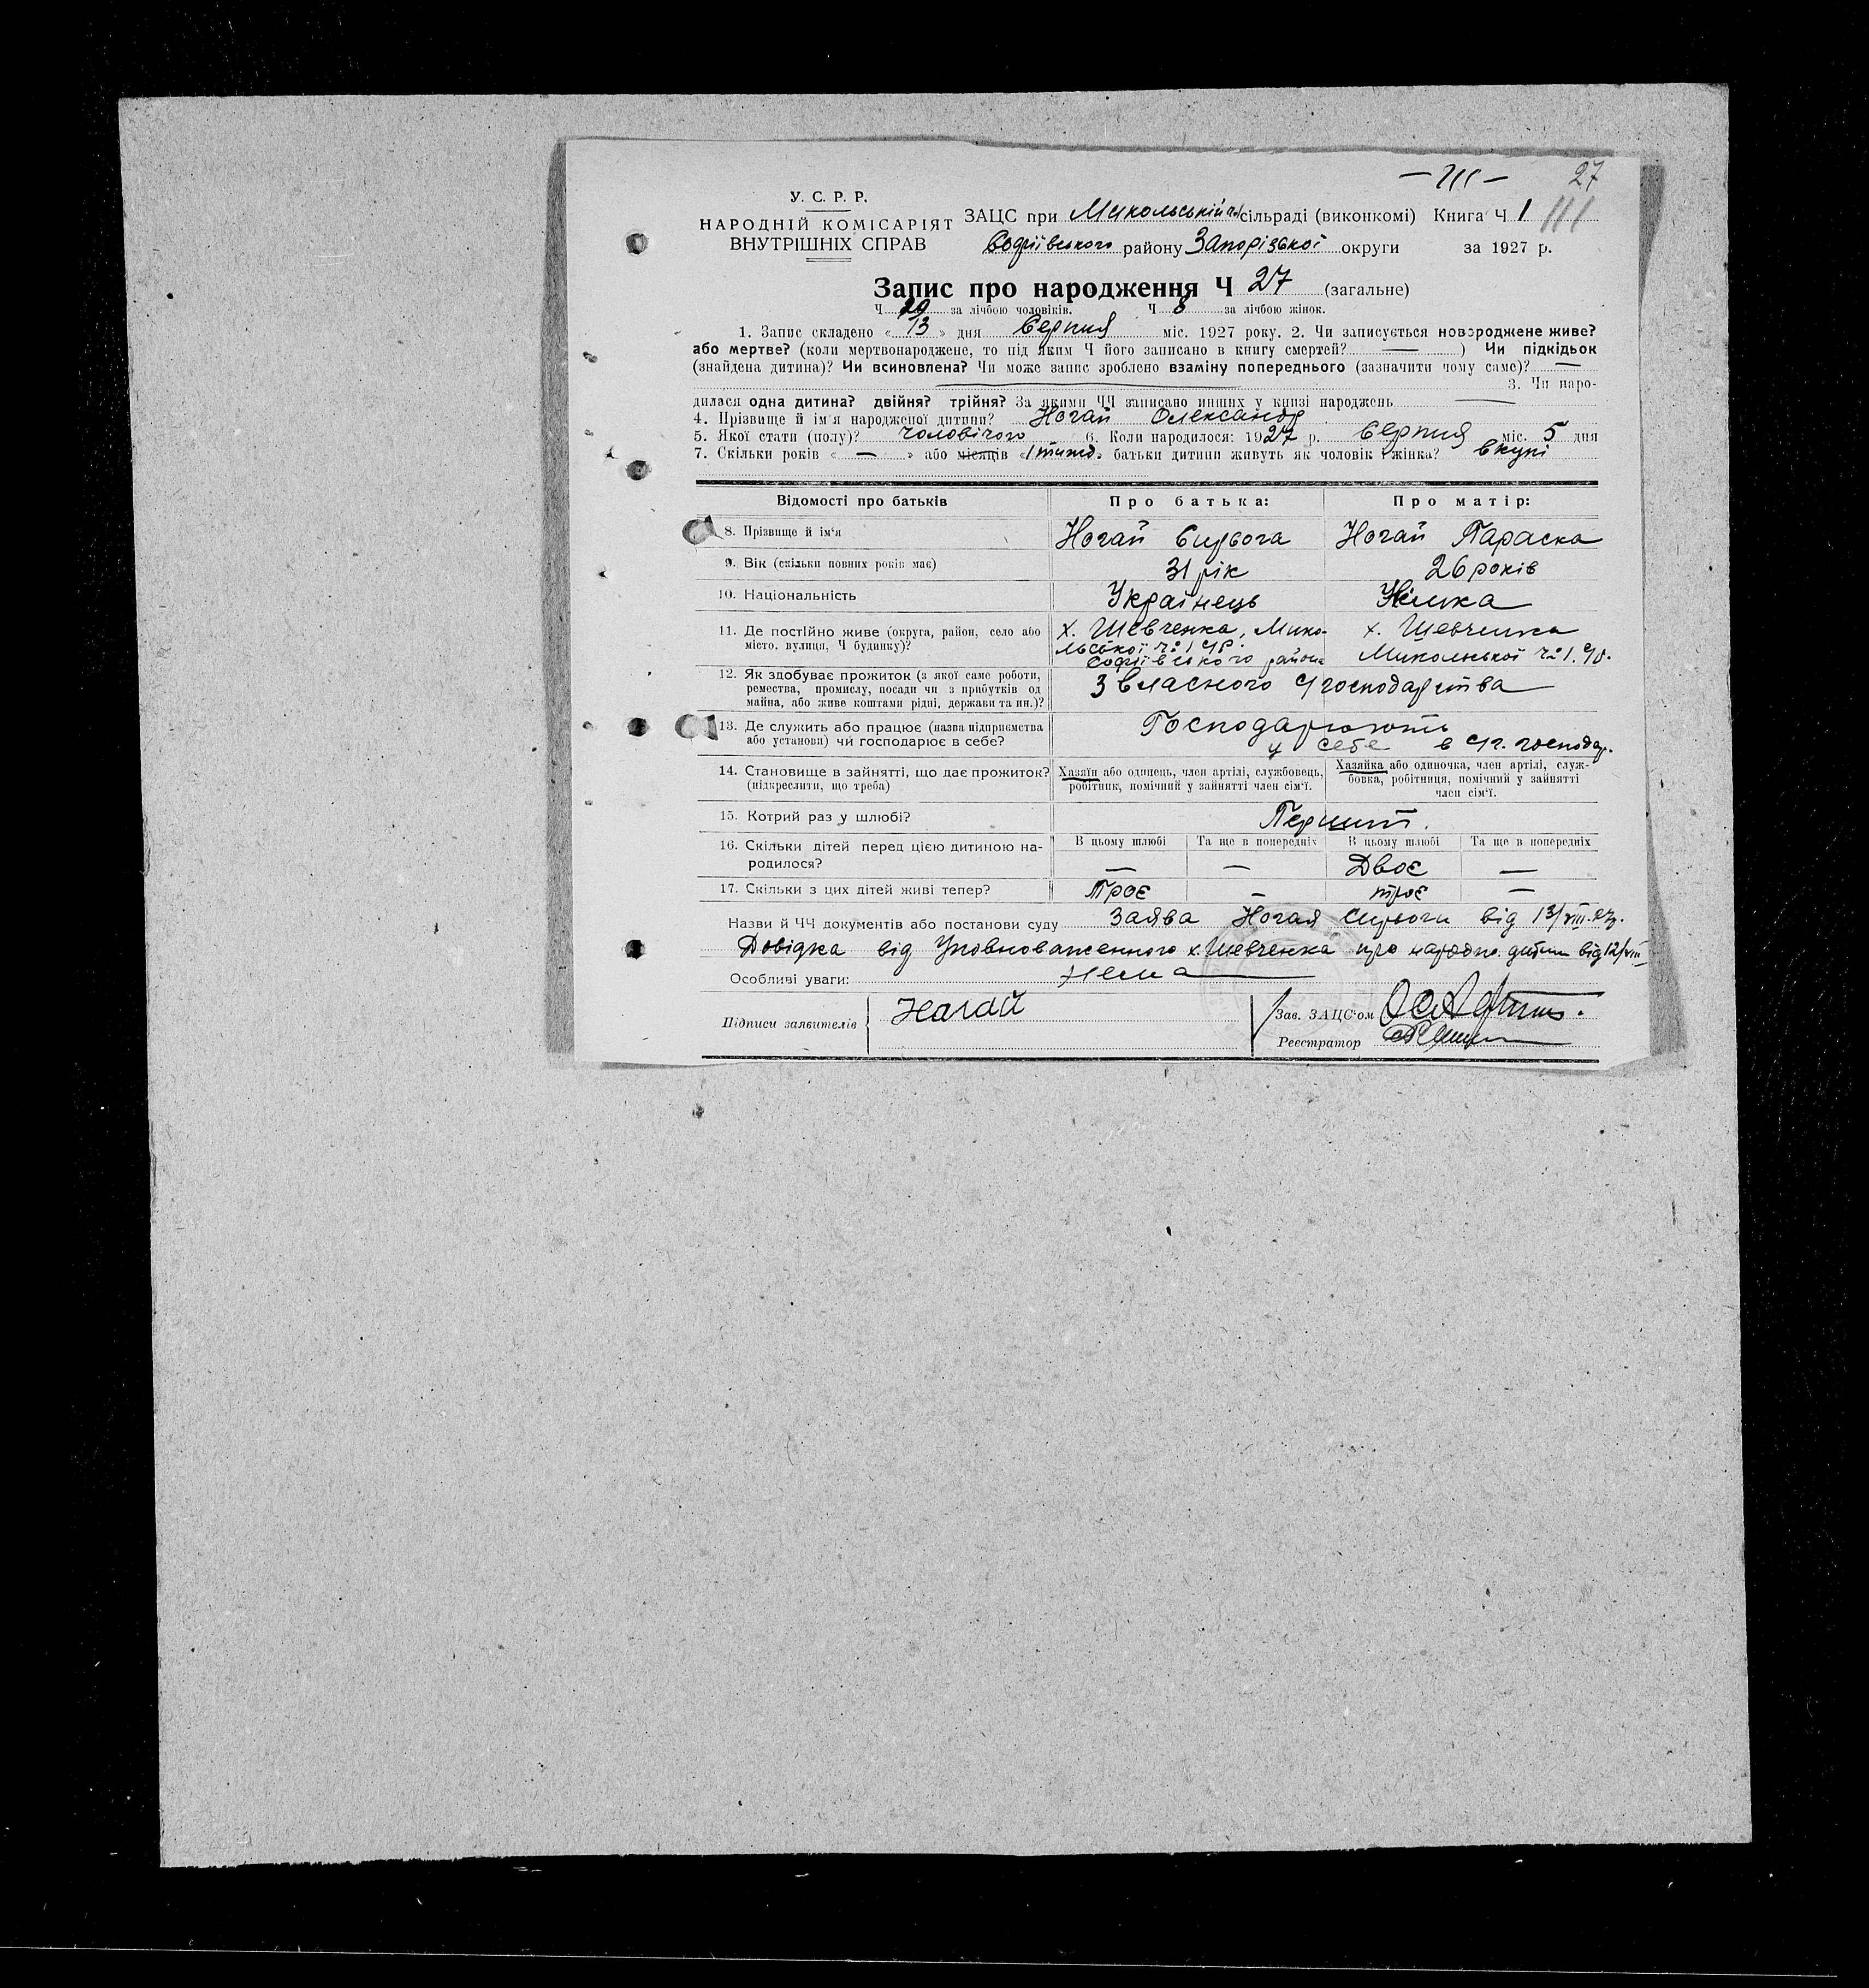 — III — 27
У. С. Р. Р.
НАРОДНІЙ КОМІСАРІЯТ
ВНУТРІШНІХ СПРАВ
ЗАЦС при Микольській ч1 сільраді (виконкомі) Книга Ч 1 111
Софіївського району Запорізької округи за 1927 р.
Запис про народження Ч 27 (загальне)
Ч за лічбою чоловіків. Ч 8 за лічбою жінок.
1. Запис складено «13» дня Серпня міс. 1927 року. 2. Чи записується новороджене живе?
або мертве? (коли мертвонароджене, то під яким Ч його записано в книгу смертей? — ) Чи підкідьок
(знайдена дитина)? Чи всиновлена? Чи може запис зроблено взаміну попереднього (зазначити чому саме)? —
3. Чи наро-
дилася одна дитина? двійня? трійня? За якими ЧЧ записано инших у книзі народжень —
4. Прізвище й ім'я народженої дитини? Ногай Олександр
5. Якої стати (полу)? чоловічого 6. Коли народилося: 1927 р. Серпня міс. 5 дня
7. Скільки років « — » або місяців «1 тижд» батьки дитини живуть як чоловік і жінка? вкупі
Відомості про батьків Про батька: Про матір:
8. Прізвище й ім'я Ногай Сидьога Ногай Параска
9. Вік (скільки повних років має) 31 рік 26 років
10. Національність Українець Німка
11. Де постійно живе (округа, район, село або
місто, вулиця, Ч будинку)?
х. Шевченка, Мико-
льської ч. 1 с/р.
Софіївського району
х. Шевченка
Микольської ч. 1. с/р.
12. Як здобуває прожиток (з якої саме роботи,
ремества, промислу, посади чи з прибутків од
майна, або живе коштами рідні, держави та ин.)?
З власного с/господарства
13. Де служить або працює (назва підприємства
або установи) чи господарює в себе?
Господарюють
у себе в с/г. господар.
14. Становище в зайнятті, що дає прожиток?
(підкреслити, що треба)
Хазяїн або одинець, член артілі, службовець,
робітник, помічний у зайнятті член сім'ї.
Хазяйка або одиночка, член артілі, служ-
бовка, робітниця, помічний у зайнятті
член сім'ї.
15. Котрий раз у шлюбі? Перший.
16. Скільки дітей перед цією дитиною на-
родилося?
В цьому шлюбі Та ще в попередніх В цьому шлюбі Та ще в попередніх
— — Двоє —
17. Скільки з цих дітей живі тепер? Троє — троє —
Назви й ЧЧ документів або постанови суду Заява Ногая від 13/VIII-27.
Довідка від Уповноваженного х. Шевченка про народж. дитини від 12/VIII
Особливі уваги: Нема
Підписи заявителів Ногай
Зав. ЗАЦС'ом
Реєстратор